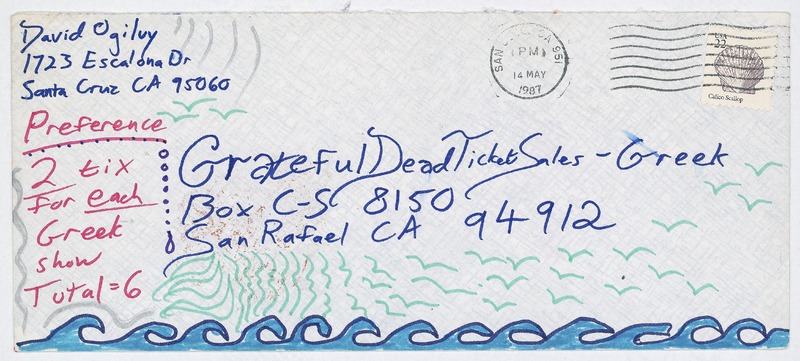 David Ogilvy
1723 Escalona Dr
Santa Cruz CA 95060
SAN JOSE, CA 951
PM
14 MAY
1987
USA
22
Calico Scallop
Preference
2 tix
for each
Greek
show
Total=6
Grateful Dead Ticket Sales - Greek
Box C-S 8150
San Rafael CA 94912